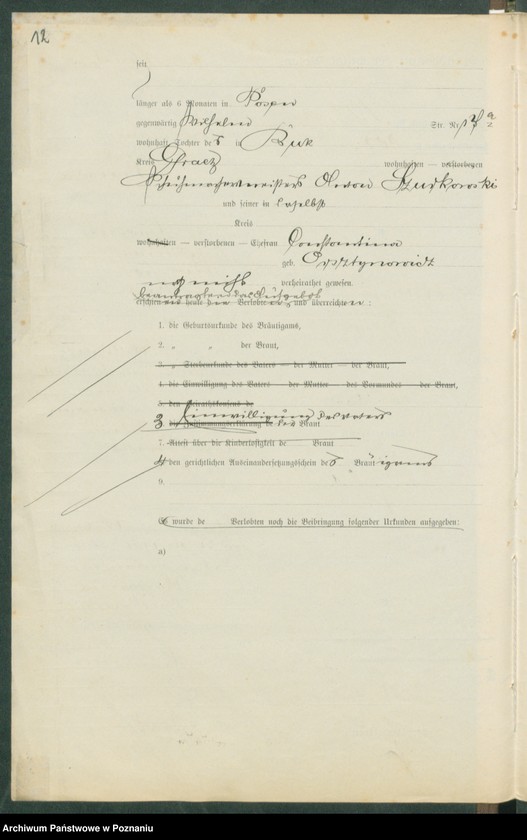 12
seit
länger als 6 Monaten in Posen
gegenwärtig Wilhelm Str. Nr. 17 a
wohnhaft Tochter des in Buk
Kreis Graetz wohnhaften — verstorbenen
Schuhmachermeisters Szudkowski
und seiner in daselbst
Kreis
wohnhaften — verstorbenen — Ehefrau Constantina
geb.
noch nicht verheirathet gewesen.
beantragten das Aufgebot
erschienen heute die Verlobten und überreichten:
1. die Geburtsurkunde des Bräutigams,
2. „ „ der Braut,
3. „ Sterbeurkunde des Vaters — der Mutter — der Braut,
4. die Einwilligung des Vaters — der Mutter — des Vormundes — der Braut,
5. den Heirathskonsens de
Einwilligung des Vaters
3 der Braut
7. Attest über die Kinderlosigkeit de Braut
4 den gerichtlichen Auseinandersetzungsschein des Bräutigams
9.
Es wurde de Verlobten noch die Beibringung folgender Urkunden aufgegeben:
a)
Archiwum Państwowe w Poznaniu